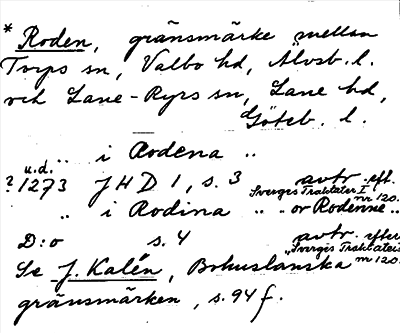 * Roden, gränsmärke mellan
Torps sn, Valbo hd, Älvsb. l.
och Lane-Ryrs sn, Lane hd,
Göteb. l.
u.d. .. i Rodena ..
? 1273 J H D 1, s. 3 avtr. eft. Sverges Traktater I nr 120.
.. i Rodina .. .. or Rodenne ..
D:o s. 4 avtr. efter „Sverges Traktater nr 120.
Se J. Kalén, Bohuslänska
gränsmärken, s. 94 f.